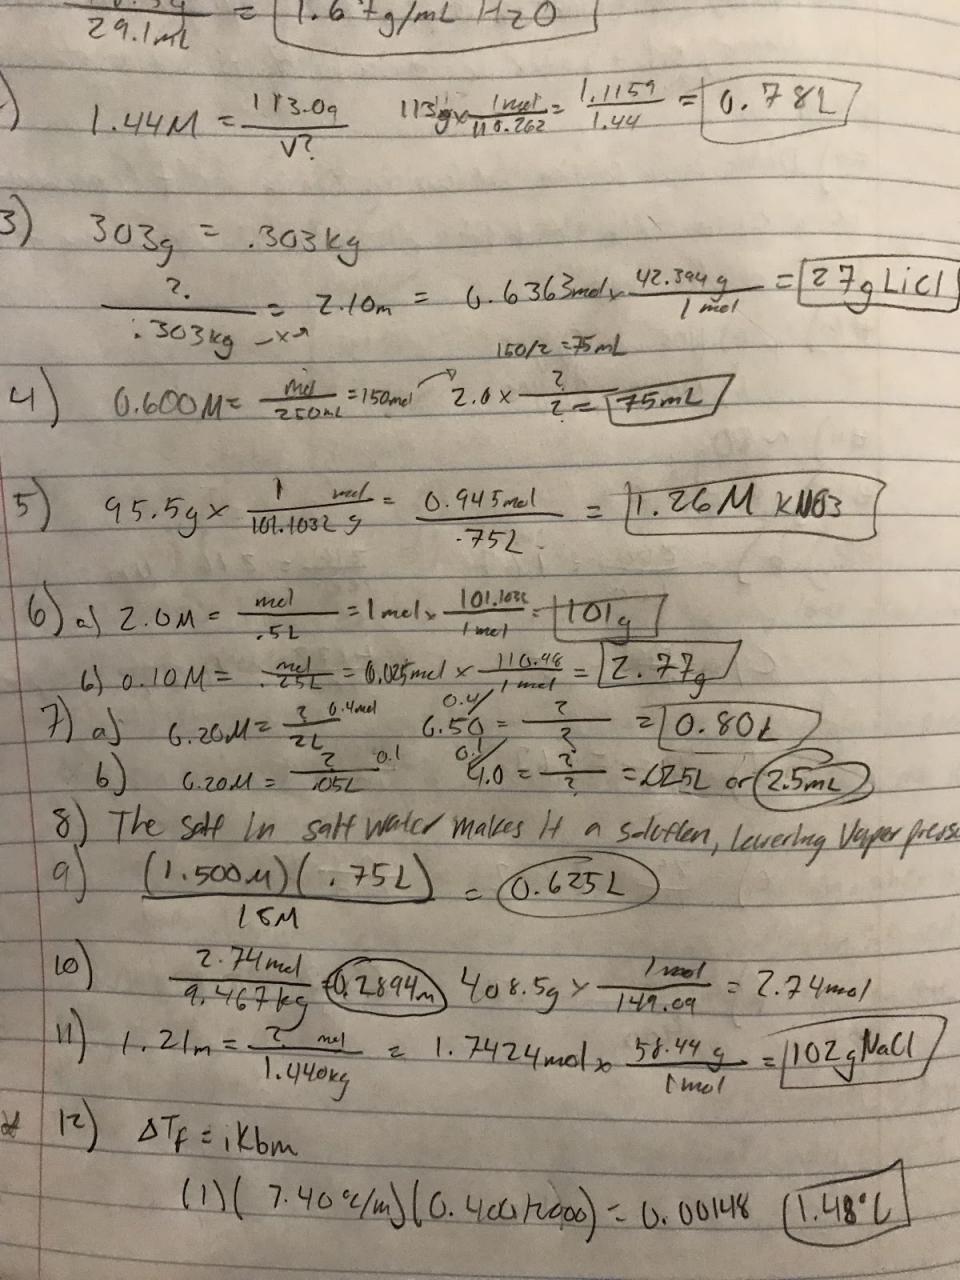 29.1mL = 1.67g/mL H2O
1.44M = 113.0g / V? 113g x 1mol / 110.262 = 1.1159 / 1.44 = 0.78L
3) 303g = .303kg
? / .303kg = 2.10m = 0.6363mol x 42.394g / 1mol = 27g LiCl
150/2 = 75mL
4) 0.600M = mol / 250mL = 150mol 2.0 x ? / ? = 75mL
5) 95.5g x 1 mol / 101.1032 g = 0.945mol / .75L = 1.26M KNO3
6) a) 2.0M = mol / .5L = 1mol x 101.1032 / 1mol = 101g
b) 0.10M = mol / .25L = 0.025mol x 110.98 / 1mol = 2.77g
7) a) 0.20M = ? 0.4mol / 2L 0.4/ 0.50 = ? / ? = 0.80L
b) 0.20M = ? 0.1 / .05L 0.1/ 4.0 = ? / ? = .025L or 2.5mL
8) The salt in salt water makes it a solution, lowering vapor press
9) (1.500M)(.75L) / 15M = 0.625L
10) 2.74mol / 9.467kg = 0.2894m 408.5g x 1mol / 149.09 = 2.74mol
11) 1.21m = ? mol / 1.440kg = 1.7424mol x 58.44 g / 1mol = 102g NaCl
12) ΔTf = iKbm
(1)(7.40°C/m)(0.400/2000) = 0.00148 1.48°C